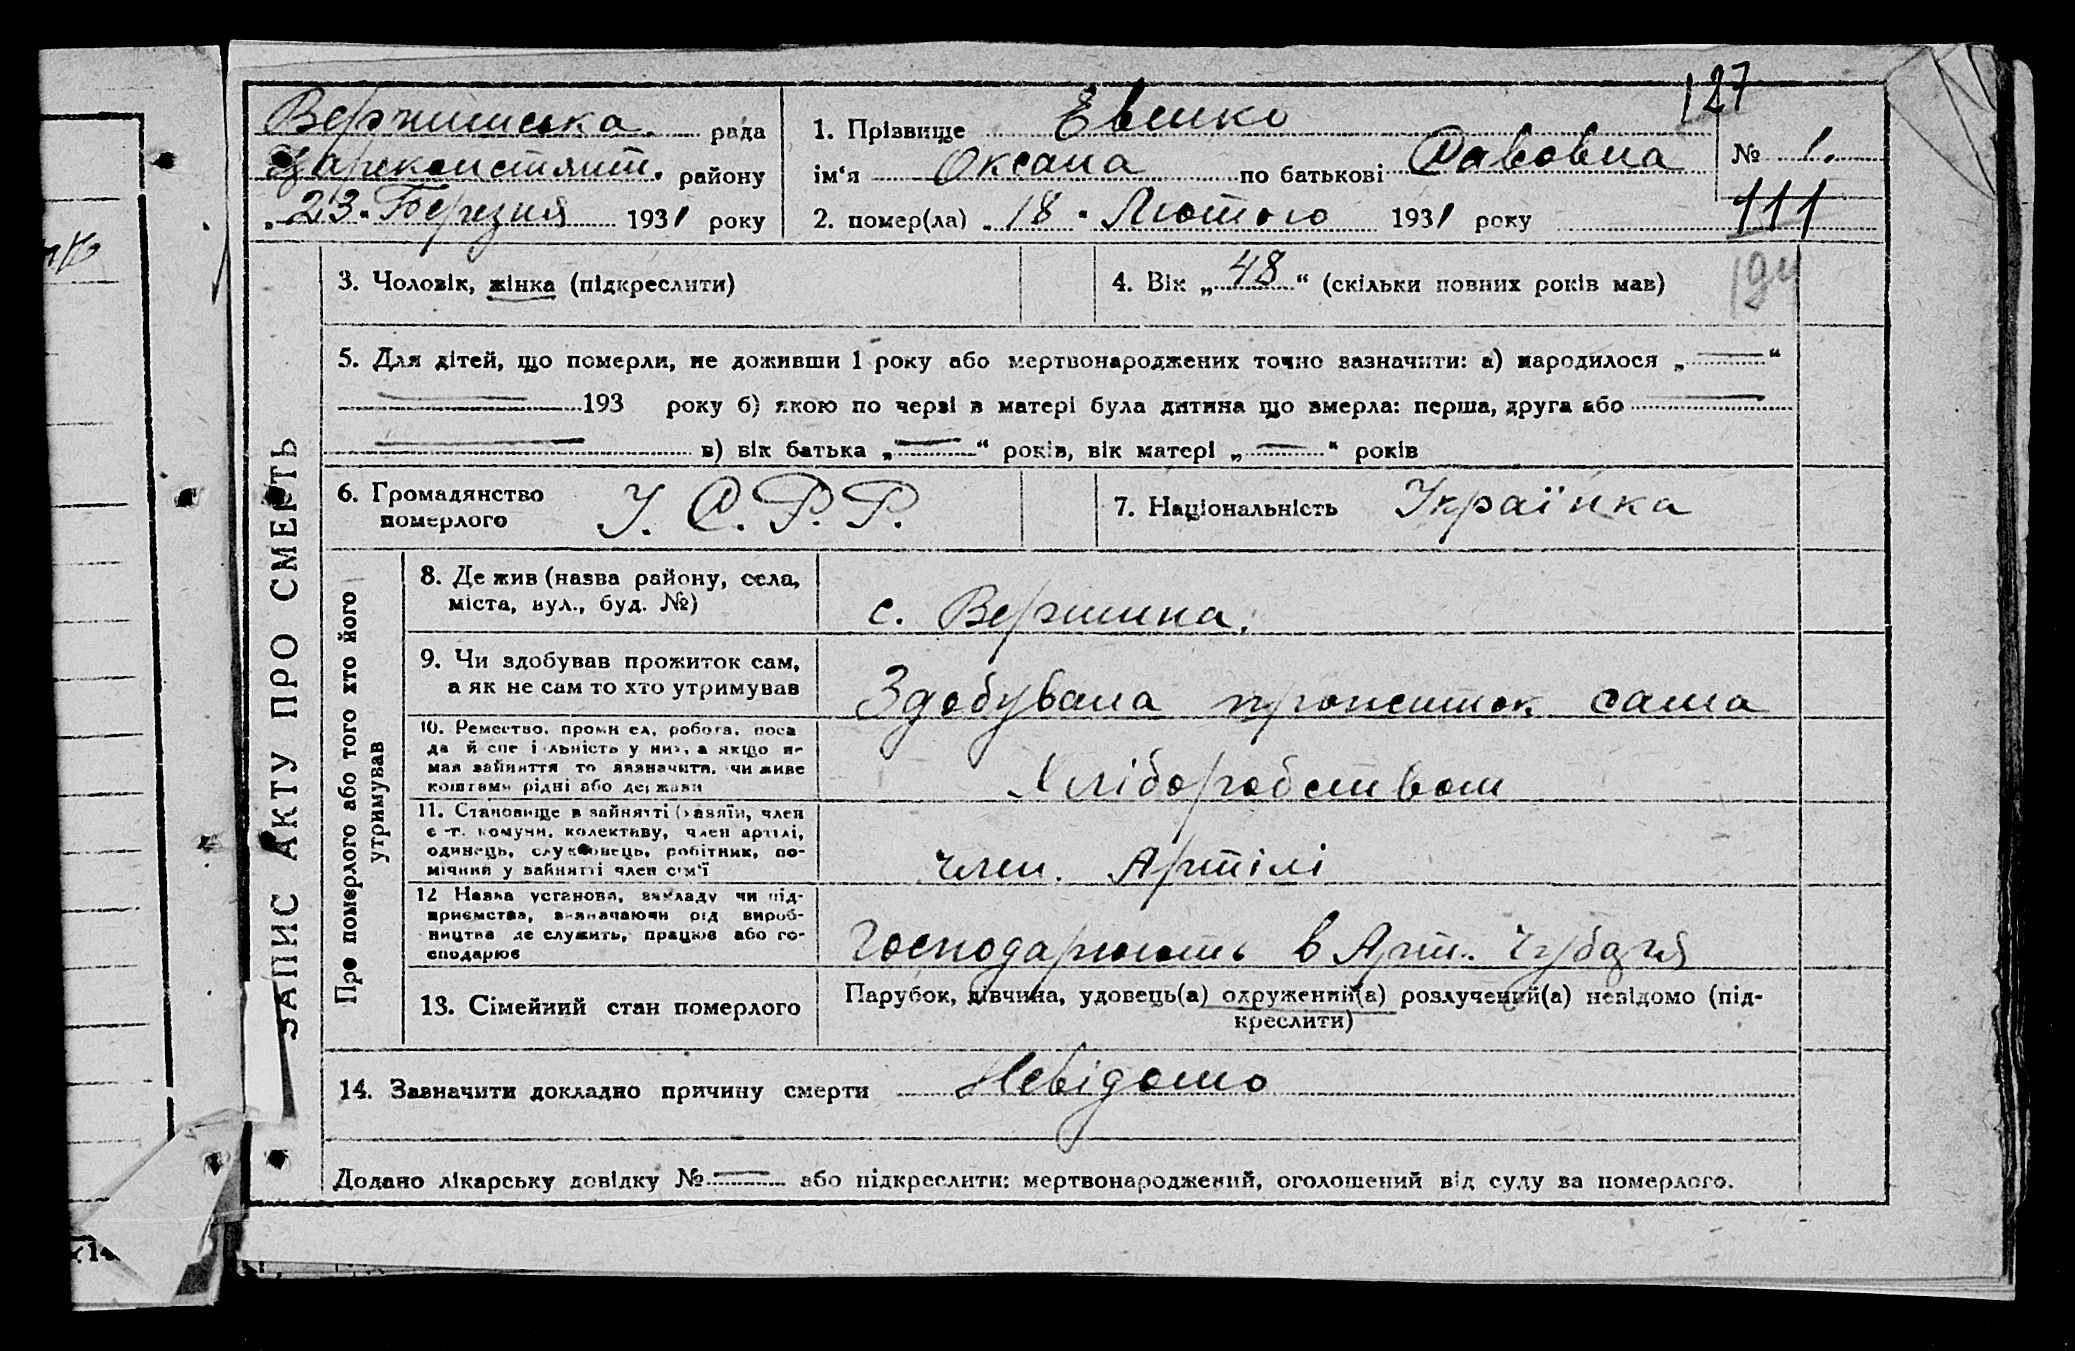 127
Вержинська рада
Цареконстянт. району
„23" Березня 1931 року
1. Прізвище Евенко
ім‘я Оксана по батькові Савовна
№ 1.
2. помер(ла) „18" Лютого 1931 року
111
194
ЗАПИС АКТУ ПРО СМЕРТЬ
3. Чоловік, жінка (підкреслити)
4. Вік „48“ (скільки повних років мав)
5. Для дітей, що померли, не доживши 1 року або мертвонароджених точно зазначити: а) народилося „—“
— 193 року б) якою по черзі в матері була дитина що вмерла: перша, друга або —
— в) вік батька „—“ років, вік матері „—“ років
6. Громадянство
померлого
У. С. Р. Р.
7. Національність Українка
Про померлого або того хто його
утримував
8. Де жив (назва району, села,
міста, вул., буд. №)
с. Вершина.
9. Чи здобував прожиток сам,
а як не сам то хто утримував
Здобувала прожиток сама
10. Ремество, промисел, робота, поса
да й спеціяльність у них, а якщо не
мав зайняття то зазначити, чи живе
коштами рідні або держави
Хліборобством
11. Становище в зайнятті (хазяїн, член
с.-г. комуни, колективу, член артілі,
одинець, службовець, робітник, по-
мічний у зайнятті член сім'ї
член. Артілі
12 Назва установи, закладу чи під-
приємства, визначаючи рід вироб-
ництва де служить, працює або го-
сподарює
Господарюють в Арт. Чубаря
13. Сімейний стан померлого
Парубок, дівчина, удовець(а) одружений(а) розлучений(а) невідомо (під-
креслити)
14. Зазначити докладно причину смерти Невідомо
Додано лікарську довідку № — або підкреслити: мертвонароджений, оголошений від суду за померлого.